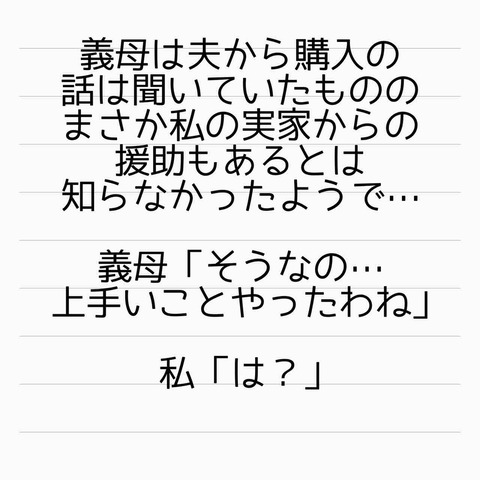 義母は夫から購入の
話は聞いていたものの
まさか私の実家からの
援助もあるとは
知らなかったようで…
義母「そうなの…
上手いことやったわね」
私「は？」